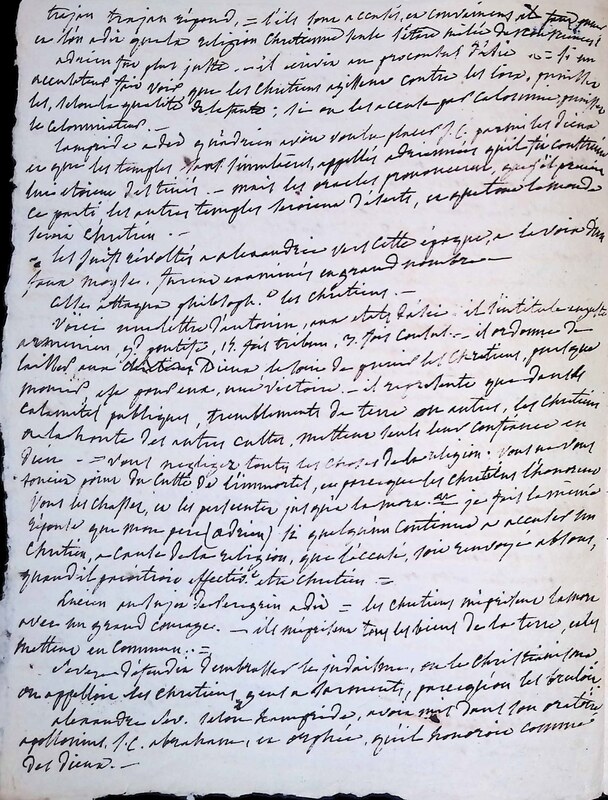 trajan trajan répond, = s'ils sont accusés, et convaincus
et l'on a dit que la religion Chretienne seule
adrien fut plus juste. — il écrivit au proconsul d'asie = Si un
accusateur fait voir que les Chrétiens agissent contre les loix, punissez
les, selon la qualité de la faute; si on les accuse par Calomnie, punissez
le Calomniateur. —
Lampride a dit qu'adrien avoit voulu placer J. C. parmi les dieux
et que les temples sans simulacres, appellés adrianées qu'il fit construire
lui étoient destinés. — mais les oracles prononcerent, que s'il prenoit
ce parti les autres temples seroient déserts, et que tout le monde
seroit Chretien. —
= les Juifs révoltés a alexandrie vers cette époque, a la voix d'un
faux moyse, furent exterminés en grand nombre —
Celse attaqua philosoph.t les chretiens. —
Voici une lettre d'antonin, aux etats d'asie. il s'intitule
armenien gd pontife, 15. fois tribun, 3. fois consul. — il ordonne de
laisser aux Dieux le soin de punir les Chretiens, puisque
mourir, est pour eux, une victoire. — il représente que dans les
calamités publiques, tremblements de terre ou autres, les chrétiens
a la honte des autres cultes, mettent seuls leur confiance en
dieu. — = vous negligez toutes les choses de la religion. vous ne vous
souciez point du Culte de l'immortel, et parceque les chretiens l'honorent
vous les chassez, et les persecutez jusqu'a la mort. je fais la même
réponse que mon pere (adrien) si quelqu'un continue a accuser un
Chretien, a cause de la religion, que l'accusé, soit renvoyé absous,
quand il paroitroit effectiv.t etre chretien. =
Lucien au sujet de Peregrin a dit = les chretiens meprisent la mort
avec un grand courage. — ils méprisent tous les biens de la terre, et les
mettent en commun. =
Severe défendit d'embrasser le judaisme, ou le Christianisme
on appelloit les chretiens, gens a sarments, parcequ'on les bruloit
alexandre Sev. selon Lampride, avoit mis dans son oratoire
apollonius, J. C. abraham, et orphée, qu'il honoroit comme
des dieux. —